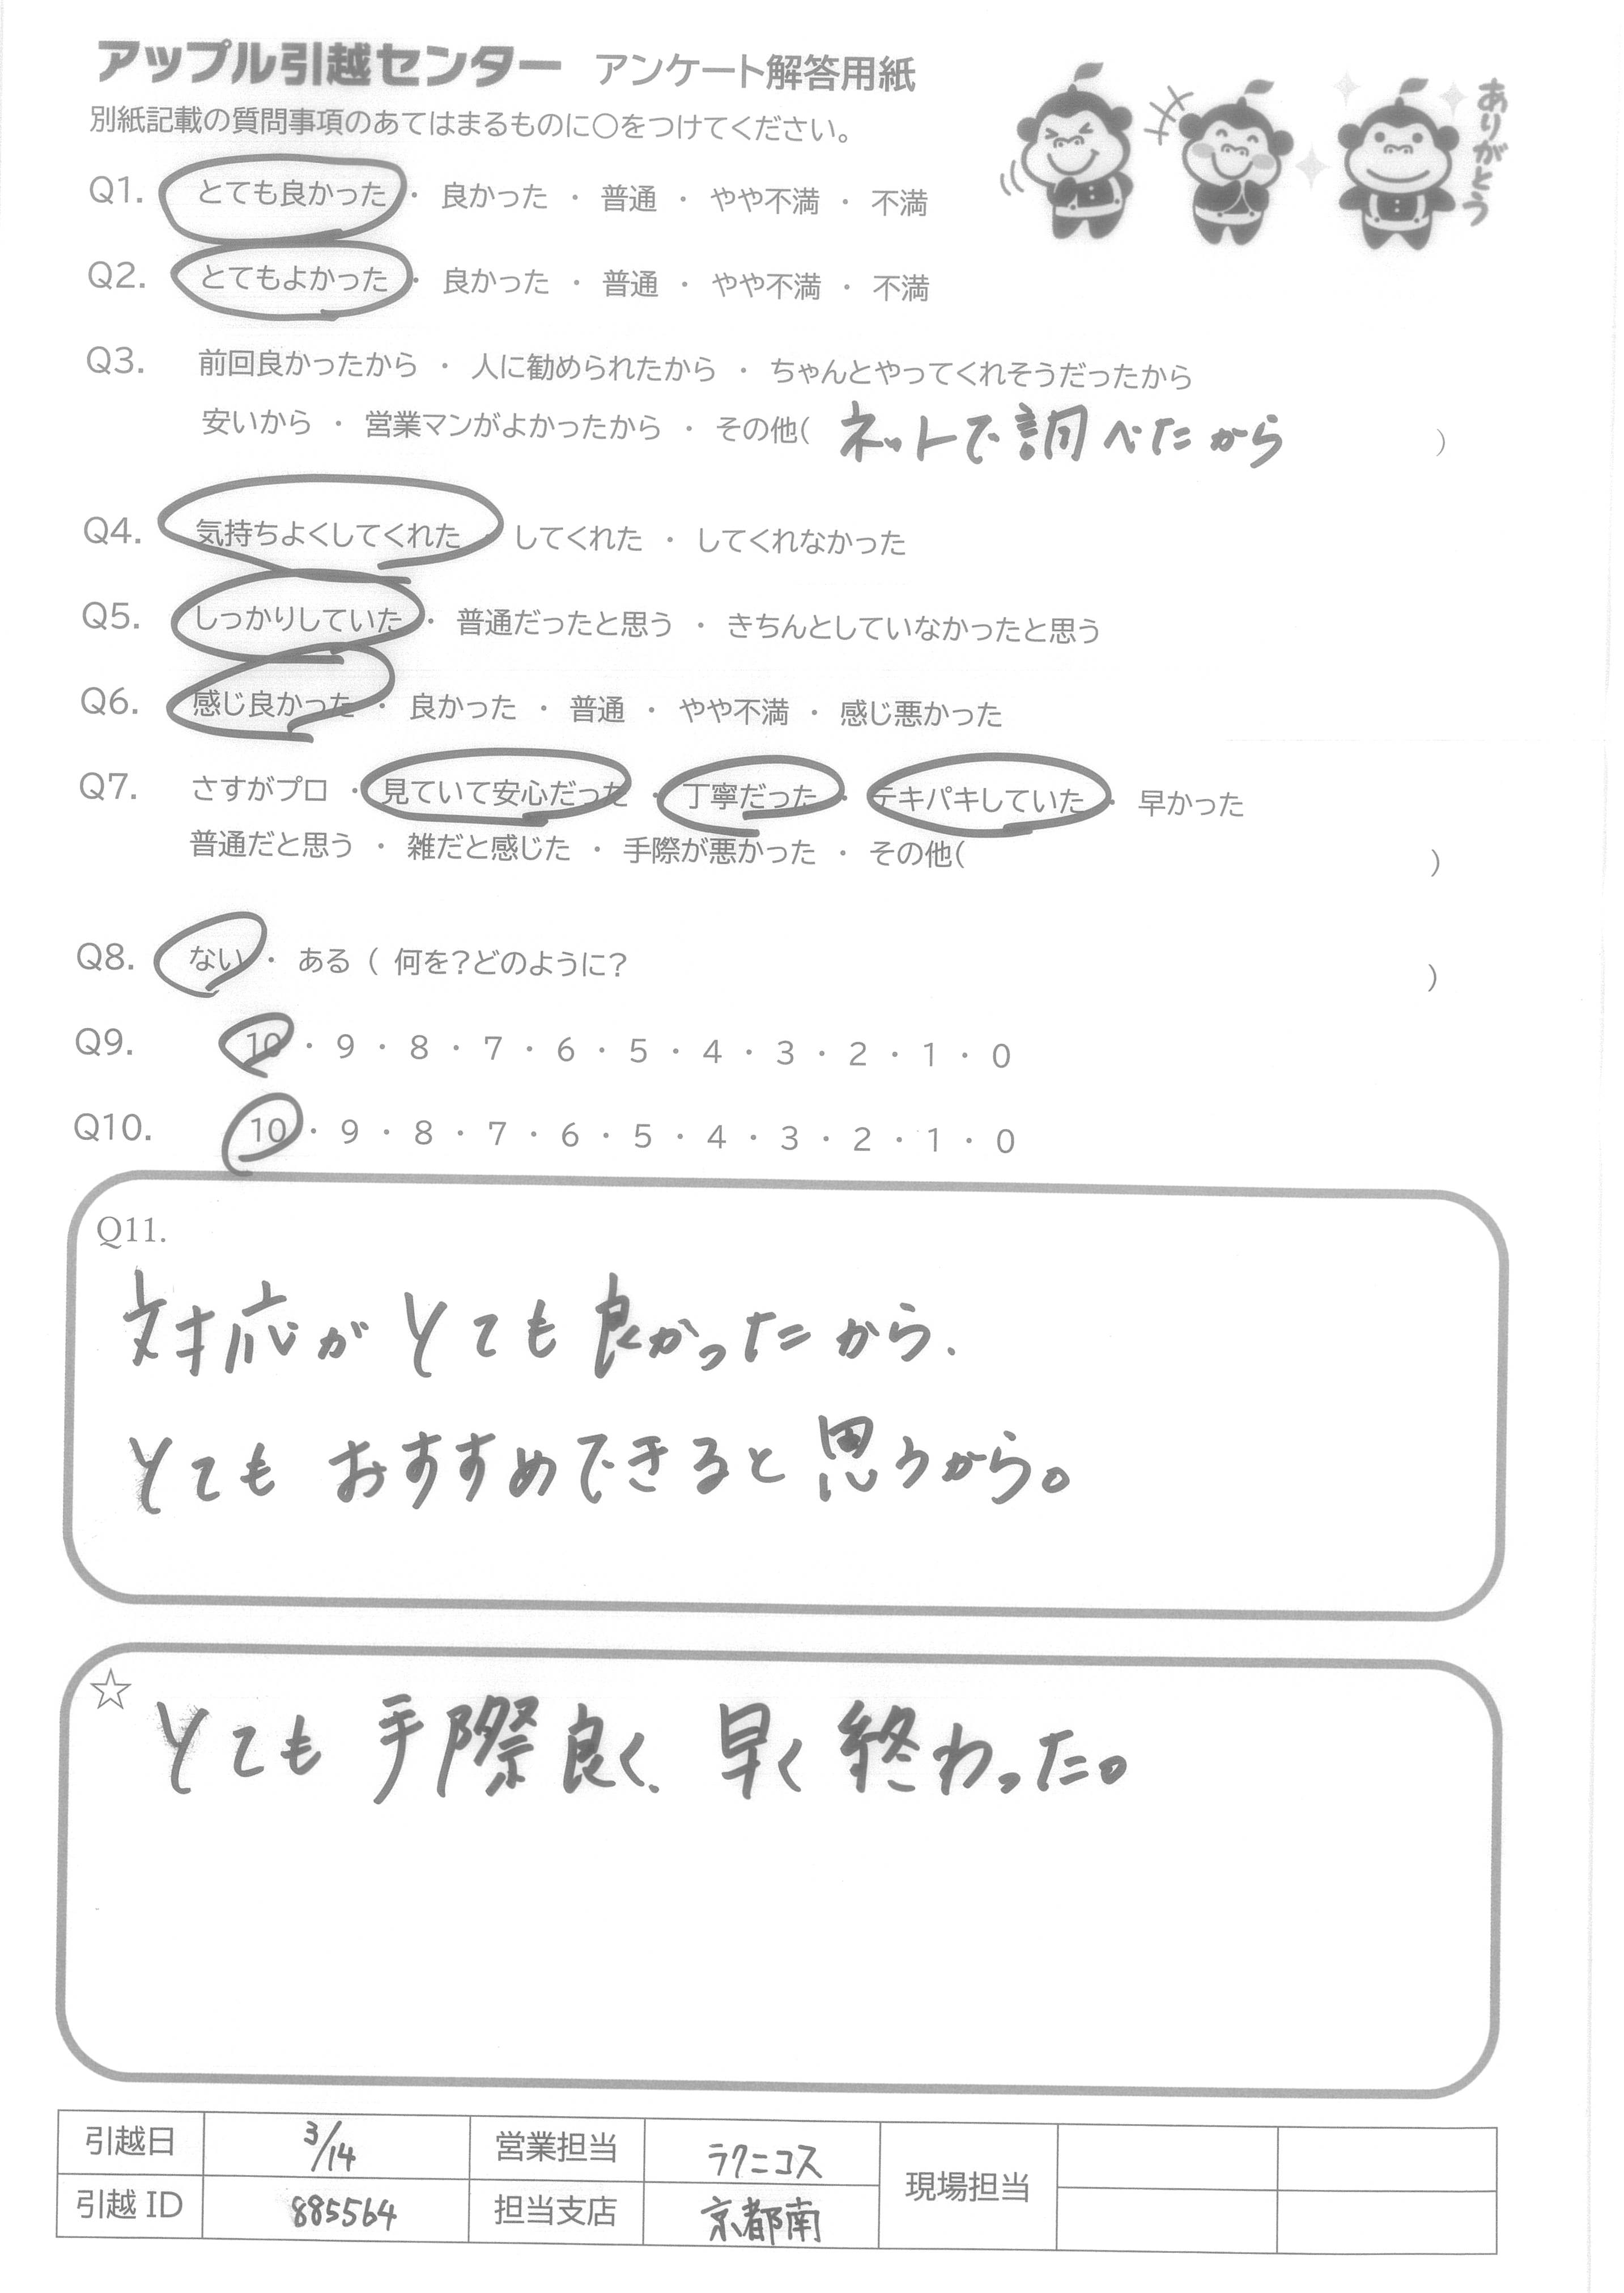 アップル引越センター アンケート解答用紙
ありがとう
別紙記載の質問事項のあてはまるものに○をつけてください。
Q1. とても良かった ・ 良かった ・ 普通 ・ やや不満 ・ 不満
Q2. とてもよかった ・ 良かった ・ 普通 ・ やや不満 ・ 不満
Q3. 前回良かったから ・ 人に勧められたから ・ ちゃんとやってくれそうだったから
安いから ・ 営業マンがよかったから ・ その他( ネットで調べたから )
Q4. 気持ちよくしてくれた ・ してくれた ・ してくれなかった
Q5. しっかりしていた ・ 普通だったと思う ・ きちんとしていなかったと思う
Q6. 感じ良かった ・ 良かった ・ 普通 ・ やや不満 ・ 感じ悪かった
Q7. さすがプロ ・ 見ていて安心だった ・ 丁寧だった ・ テキパキしていた ・ 早かった
普通だと思う ・ 雑だと感じた ・ 手際が悪かった ・ その他( )
Q8. ない ・ ある ( 何を?どのように? )
Q9. 10 ・ 9 ・ 8 ・ 7 ・ 6 ・ 5 ・ 4 ・ 3 ・ 2 ・ 1 ・ 0
Q10. 10 ・ 9 ・ 8 ・ 7 ・ 6 ・ 5 ・ 4 ・ 3 ・ 2 ・ 1 ・ 0
Q11.
対応がとても良かったから、
とてもおすすめできると思うから。
☆ とても手際良く、早く終わった。
引越日 3/14 営業担当 ラクニコス 現場担当
引越ID 885564 担当支店 京都南